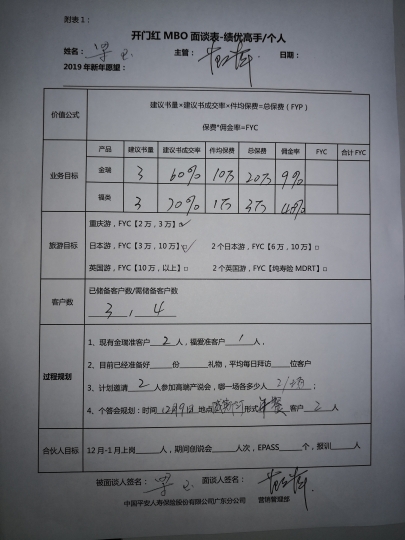 附表1：
开门红 MBO 面谈表-绩优高手/个人
姓名： 主管： 日期：
2019 年新年愿望：
价值公式 建议书量×建议书成交率×件均保费=总保费（FYP）
保费*佣金率=FYC
业务目标 产品 建议书量 建议书成交率 件均保费 总保费 佣金率 FYC 合计 FYC
金瑞 3 60% 10万 20万 9%
福类 3 70% 1万 3万 40%
旅游目标 重庆游，FYC【2 万，3 万】☑
日本游，FYC【3 万，10 万】☑ 2 个日本游，FYC【6 万，10 万】□
英国游，FYC【10 万，以上】□ 2 个英国游，FYC【纯寿险 MDRT】□
客户数 已储备客户数/需储备客户数
3 , 4
过程规划 1、现有金瑞准客户 2 人，福爱准客户 1 人，
2、目前已经准备好____份____礼物，平均每日拜访____位客户
3、计划邀请 2 人参加高端产说会，哪一场各多少人 ；
4、个答会规划：时间 12月9日 地点 形式 午餐 客户 2 人
合伙人目标 12 月-1 月上岗____人，期间创说会____人次，EPASS____个，报训____人
被面谈人签名： 面谈人签名：
中国平安人寿保险股份有限公司广东分公司 营销管理部